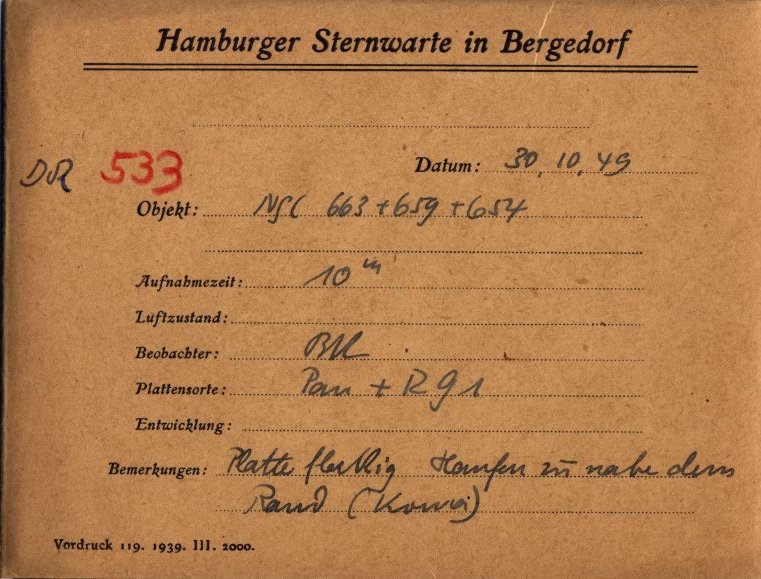 Hamburger Sternwarte in Bergedorf
DR 533
Datum: 30.10.49
Objekt: NGC 663+659+654
Aufnahmezeit: 10m
Luftzustand:
Beobachter:
Plattensorte: Pan + RG1
Entwicklung:
Bemerkungen: Platte fleckig Haufen zu nahe dem
Rand (Koma)
Vordruck 119. 1939. III. 2000.